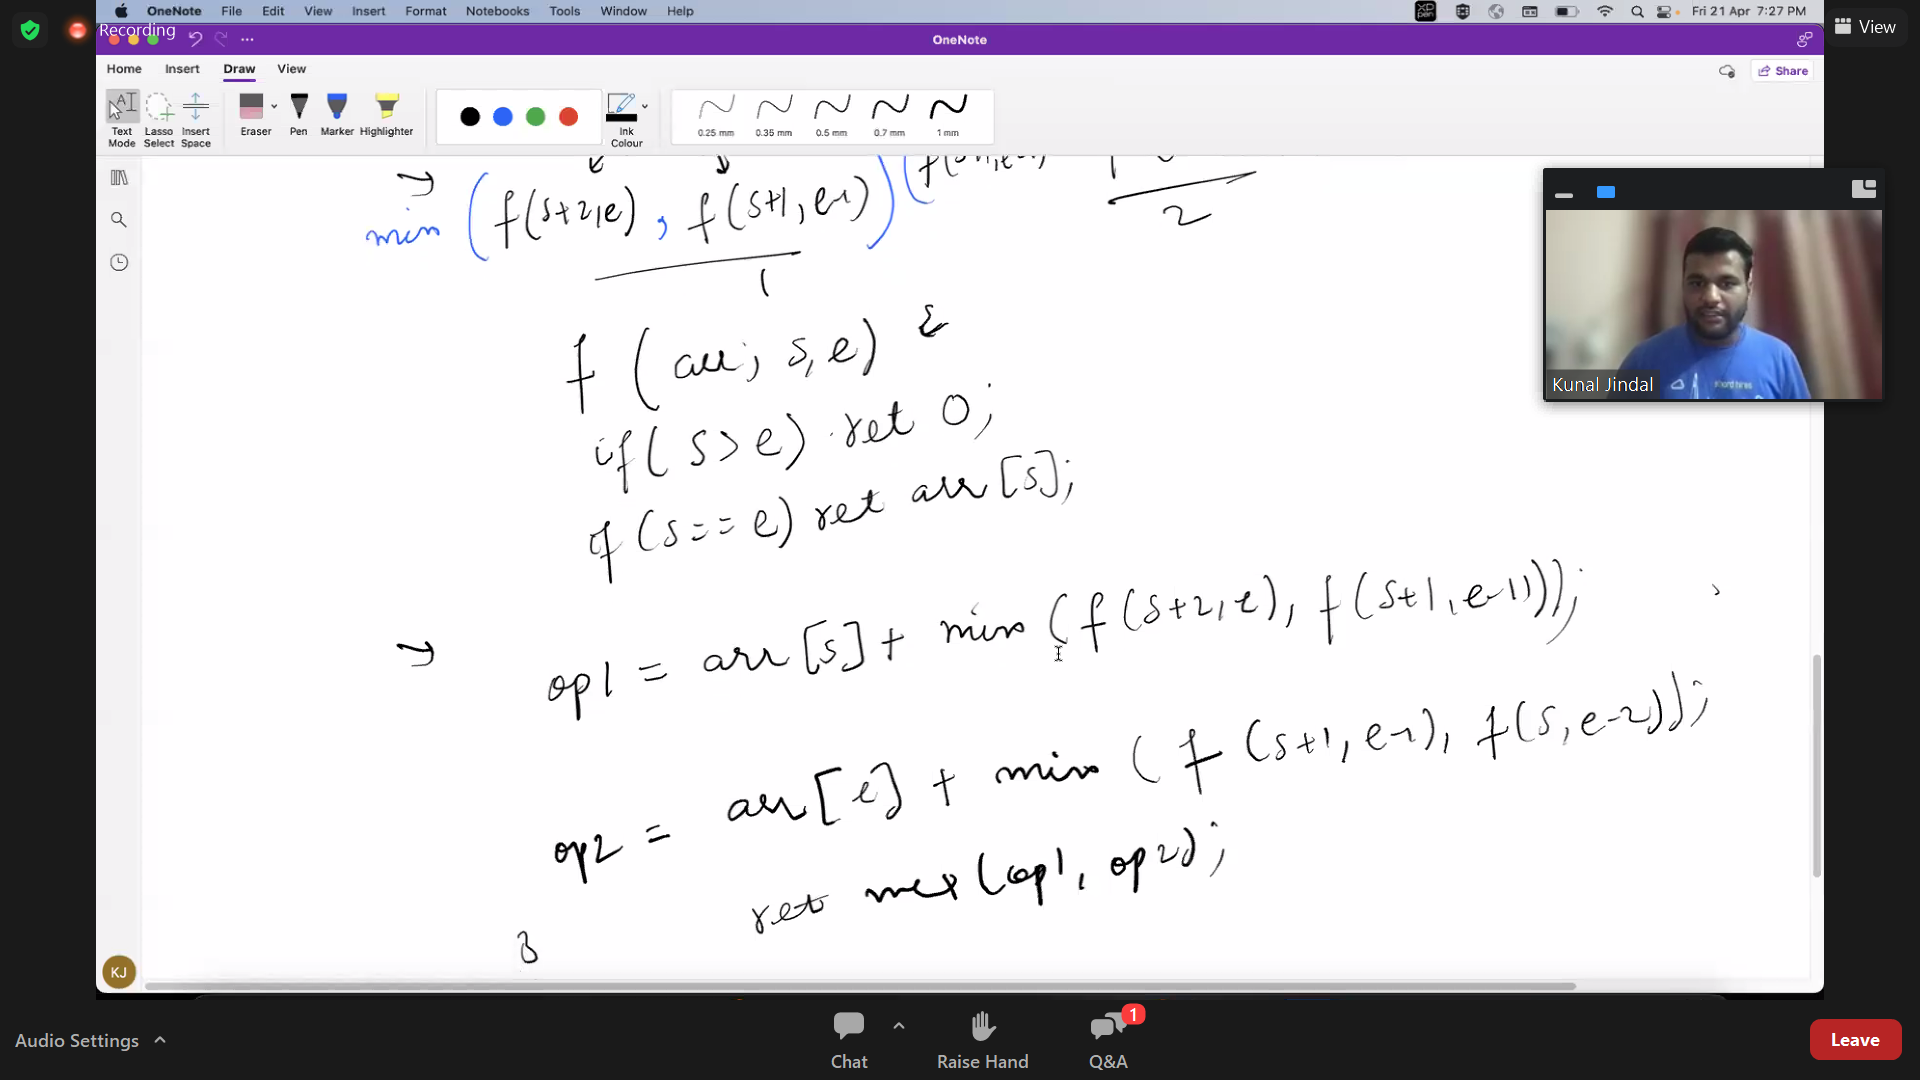 OneNote File Edit View Insert Format Notebooks Tools Window Help Fri 21 Apr 7:27 PM
Recording
OneNote
View
Home Insert Draw View
Share
Text Mode
Lasso Select
Insert Space
Eraser
Pen
Marker
Highlighter
Ink Colour
0.25 mm 0.35 mm 0.5 mm 0.7 mm 1 mm
min (f(s+2,e), f(s+1,e-1))
1
2
f (arr, s, e) {
if( s > e) ret 0;
if (s == e) ret arr[s];
op1 = arr[s] + min (f(s+2,e), f(s+1,e-1));
op2 = arr[e] + min ( f (s+1, e-1), f(s, e-2));
ret max(op1, op2);
}
Kunal Jindal
KJ
Audio Settings
Chat
Raise Hand
1
Q&A
Leave